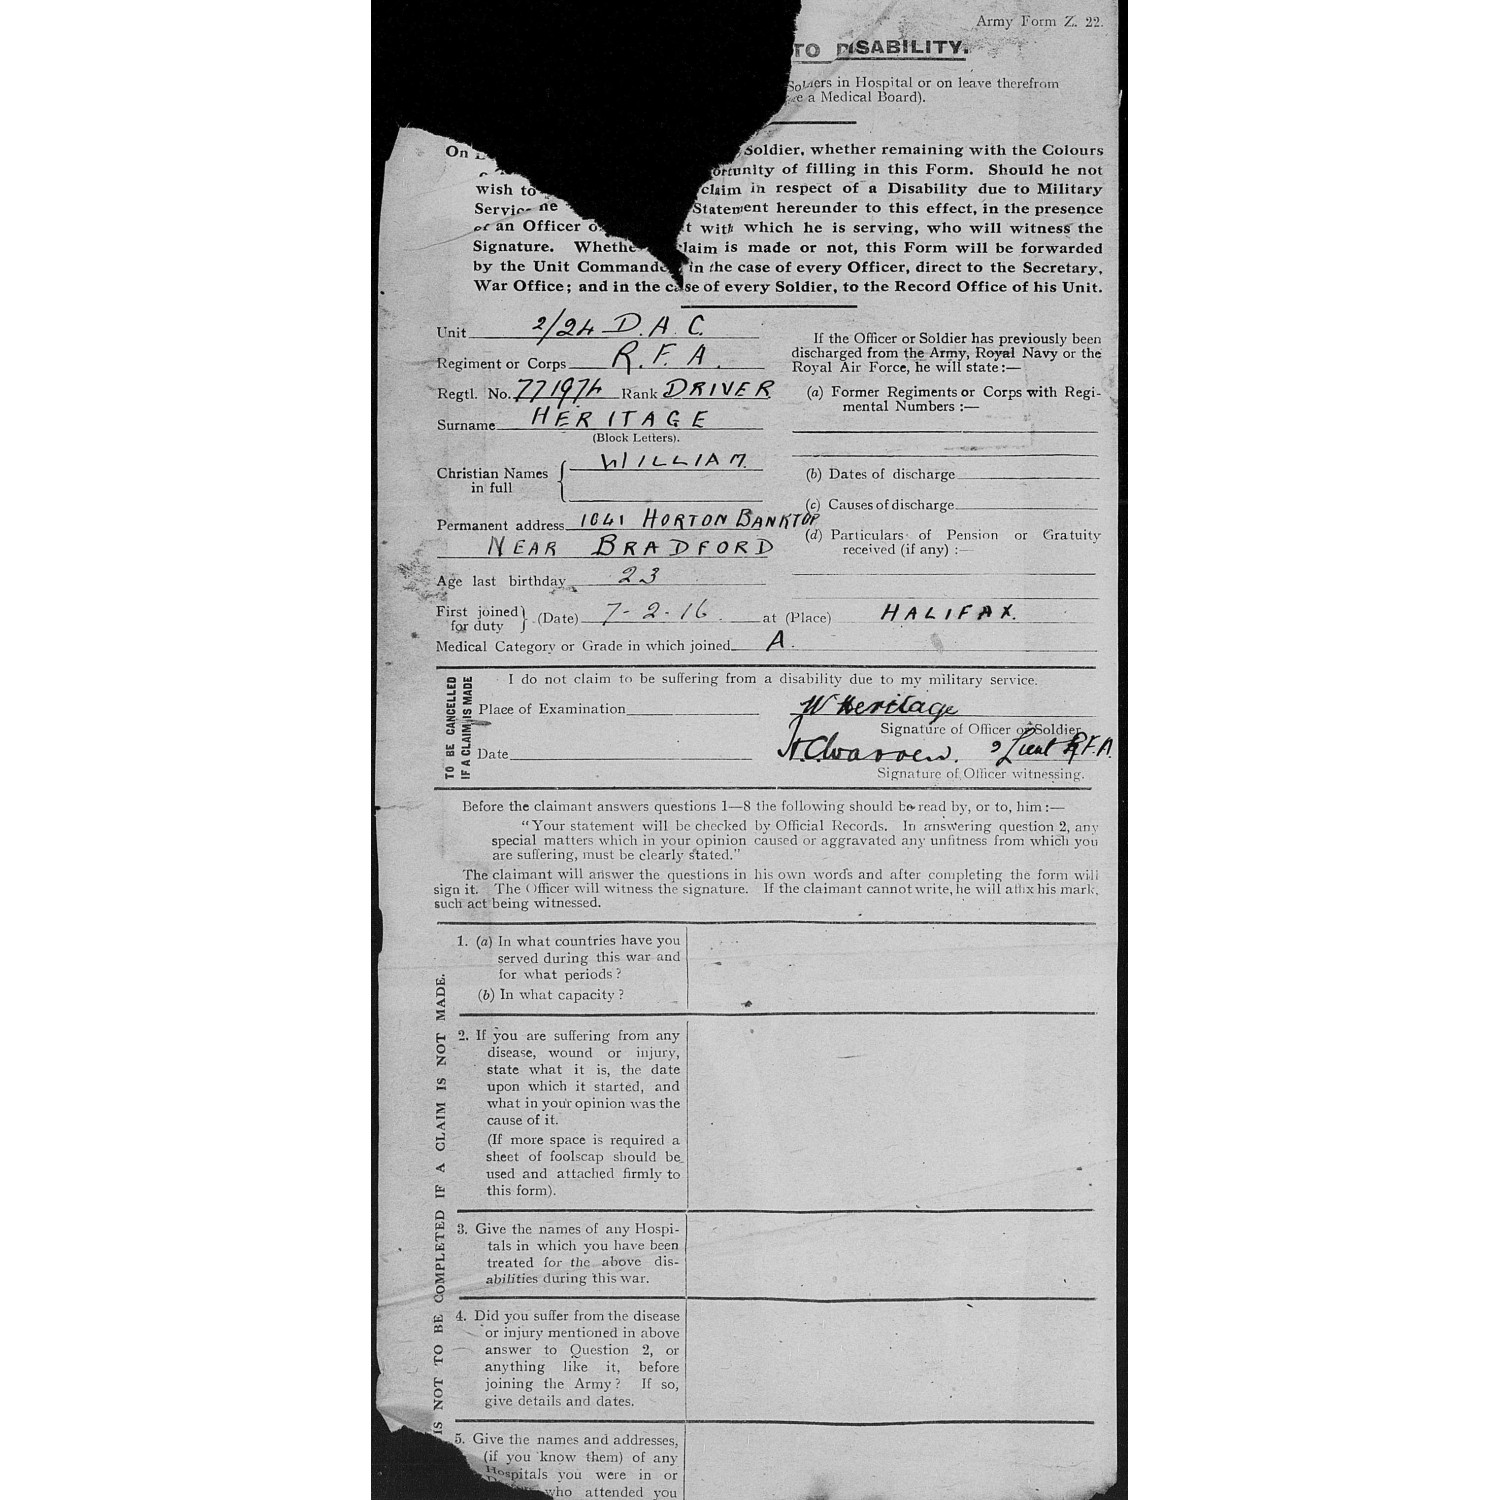 Army Form Z. 22.
TO DISABILITY.
Soldiers in Hospital or on leave therefrom
a Medical Board).
On
Soldier, whether remaining with the Colours
of filling in this Form. Should he not
wish to claim in respect of a Disability due to Military
Statement hereunder to this effect, in the presence
an Officer with which he is serving, who will witness the
Signature. is made or not, this Form will be forwarded
by the Unit in the case of every Officer, direct to the Secretary,
War Office; and in the case of every Soldier, to the Record Office of his Unit.
Unit 2/24 D.A.C.
Regiment or Corps R.F.A.
Regtl. No. 771974 Rank DRIVER
Surname HERITAGE
(Block Letters).
Christian Names in full WILLIAM
Permanent address 1041 HORTON BANKTOP
NEAR BRADFORD
Age last birthday 23
If the Officer or Soldier has previously been
discharged from the Army, Royal Navy or the
Royal Air Force, he will state:—
(a) Former Regiments or Corps with Regi-
mental Numbers :—
(b) Dates of discharge
(c) Causes of discharge
(d) Particulars of Pension or Gratuity
received (if any) :—
First joined for duty (Date) 7-2-16 at (Place) HALIFAX.
Medical Category or Grade in which joined A.
TO BE CANCELLED
IF A CLAIM IS MADE
I do not claim to be suffering from a disability due to my military service.
Place of Examination W Heritage
Signature of Officer or Soldier
Date 2 Lieut R.F.A.
Signature of Officer witnessing.
Before the claimant answers questions 1—8 the following should be read by, or to, him :—
"Your statement will be checked by Official Records. In answering question 2, any
special matters which in your opinion caused or aggravated any unfitness from which you
are suffering, must be clearly stated."
The claimant will answer the questions in his own words and after completing the form will
sign it. The Officer will witness the signature. If the claimant cannot write, he will affix his mark,
such act being witnessed.
IS NOT TO BE COMPLETED IF A CLAIM IS NOT MADE.
1. (a) In what countries have you
served during this war and
for what periods ?
(b) In what capacity ?
2. If you are suffering from any
disease, wound or injury,
state what it is, the date
upon which it started, and
what in your opinion was the
cause of it.
(If more space is required a
sheet of foolscap should be
used and attached firmly to
this form).
3. Give the names of any Hospi-
tals in which you have been
treated for the above dis-
abilities during this war.
4. Did you suffer from the disease
or injury mentioned in above
answer to Question 2, or
anything like it, before
joining the Army ? If so,
give details and dates.
5. Give the names and addresses,
(if you know them) of any
Hospitals you were in or
who attended you